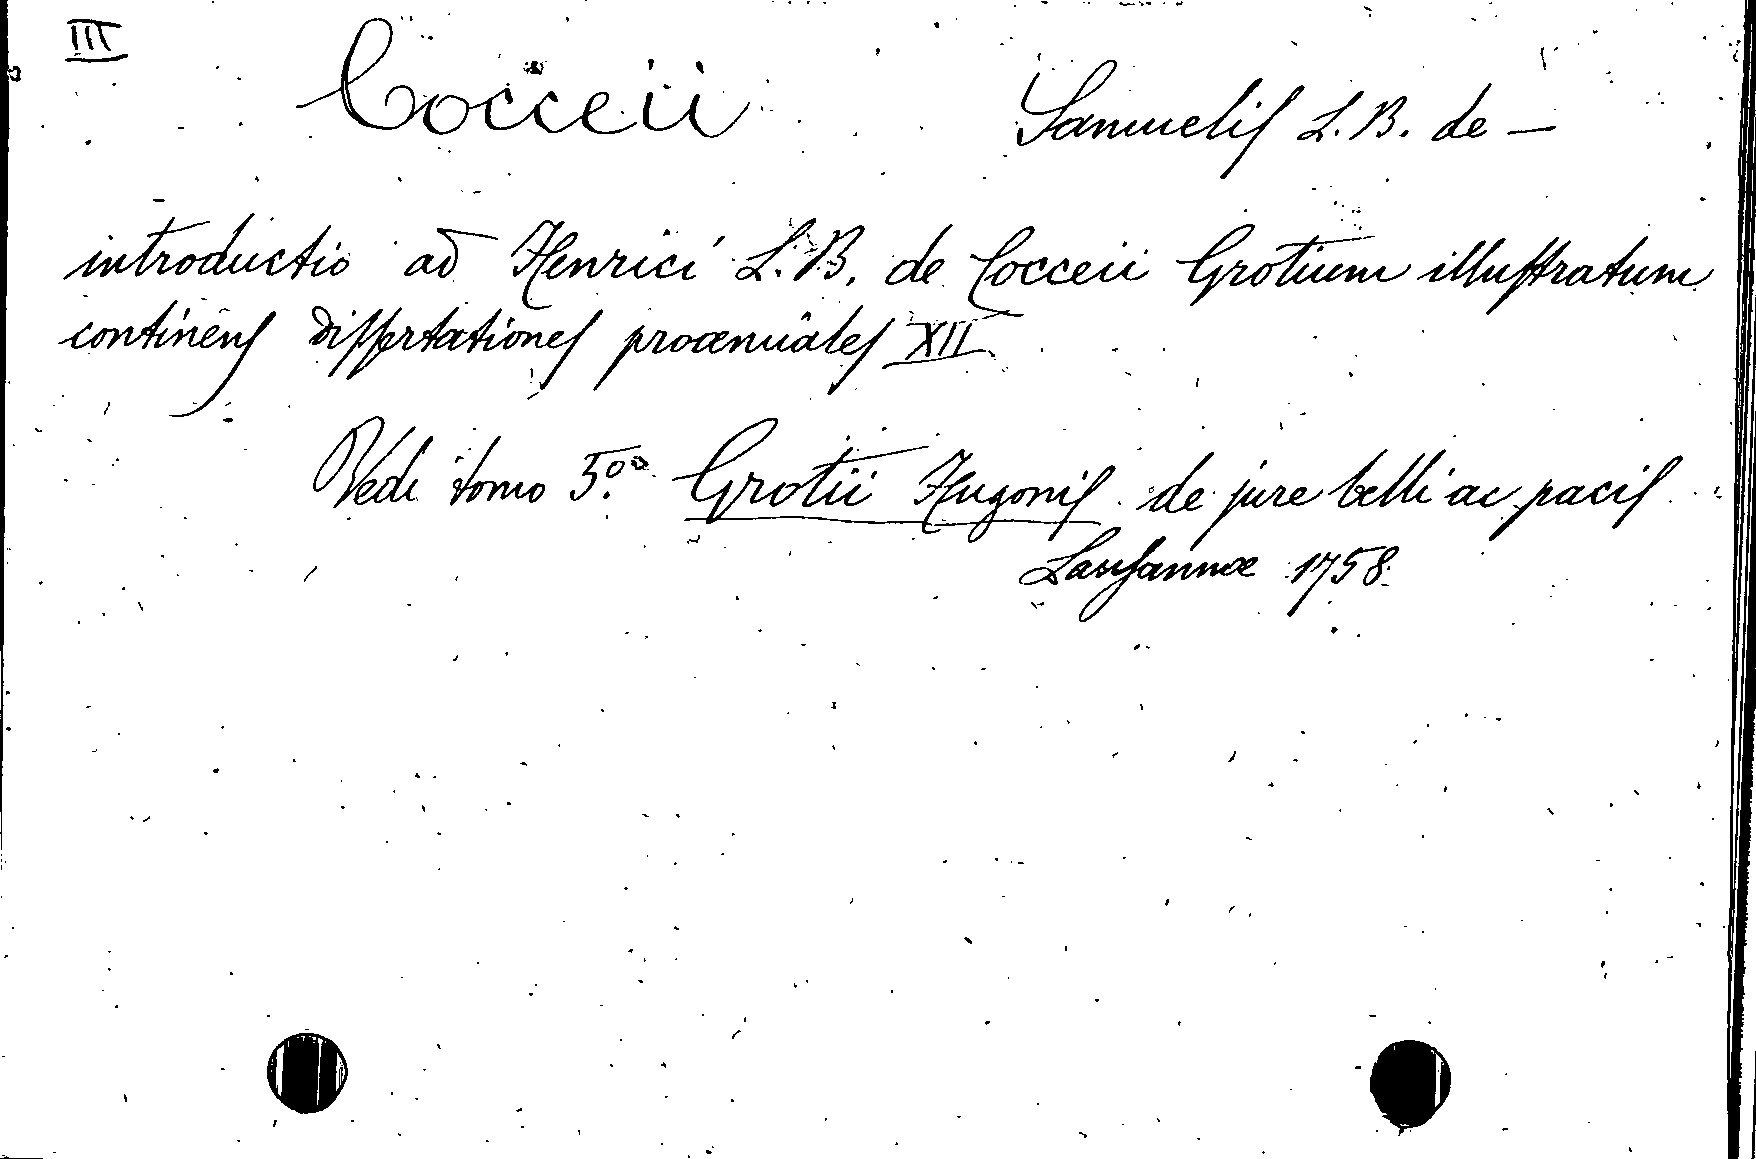 III
Cocceii Samuelis L. B. de —
introductio ad Henrici L. B. de Cocceii Grotium illustratum
continens dissertationes proœmiales XII
Vedi tomo 5.º Grotii Hugonis de jure belli ac pacis
Lausannæ 1758